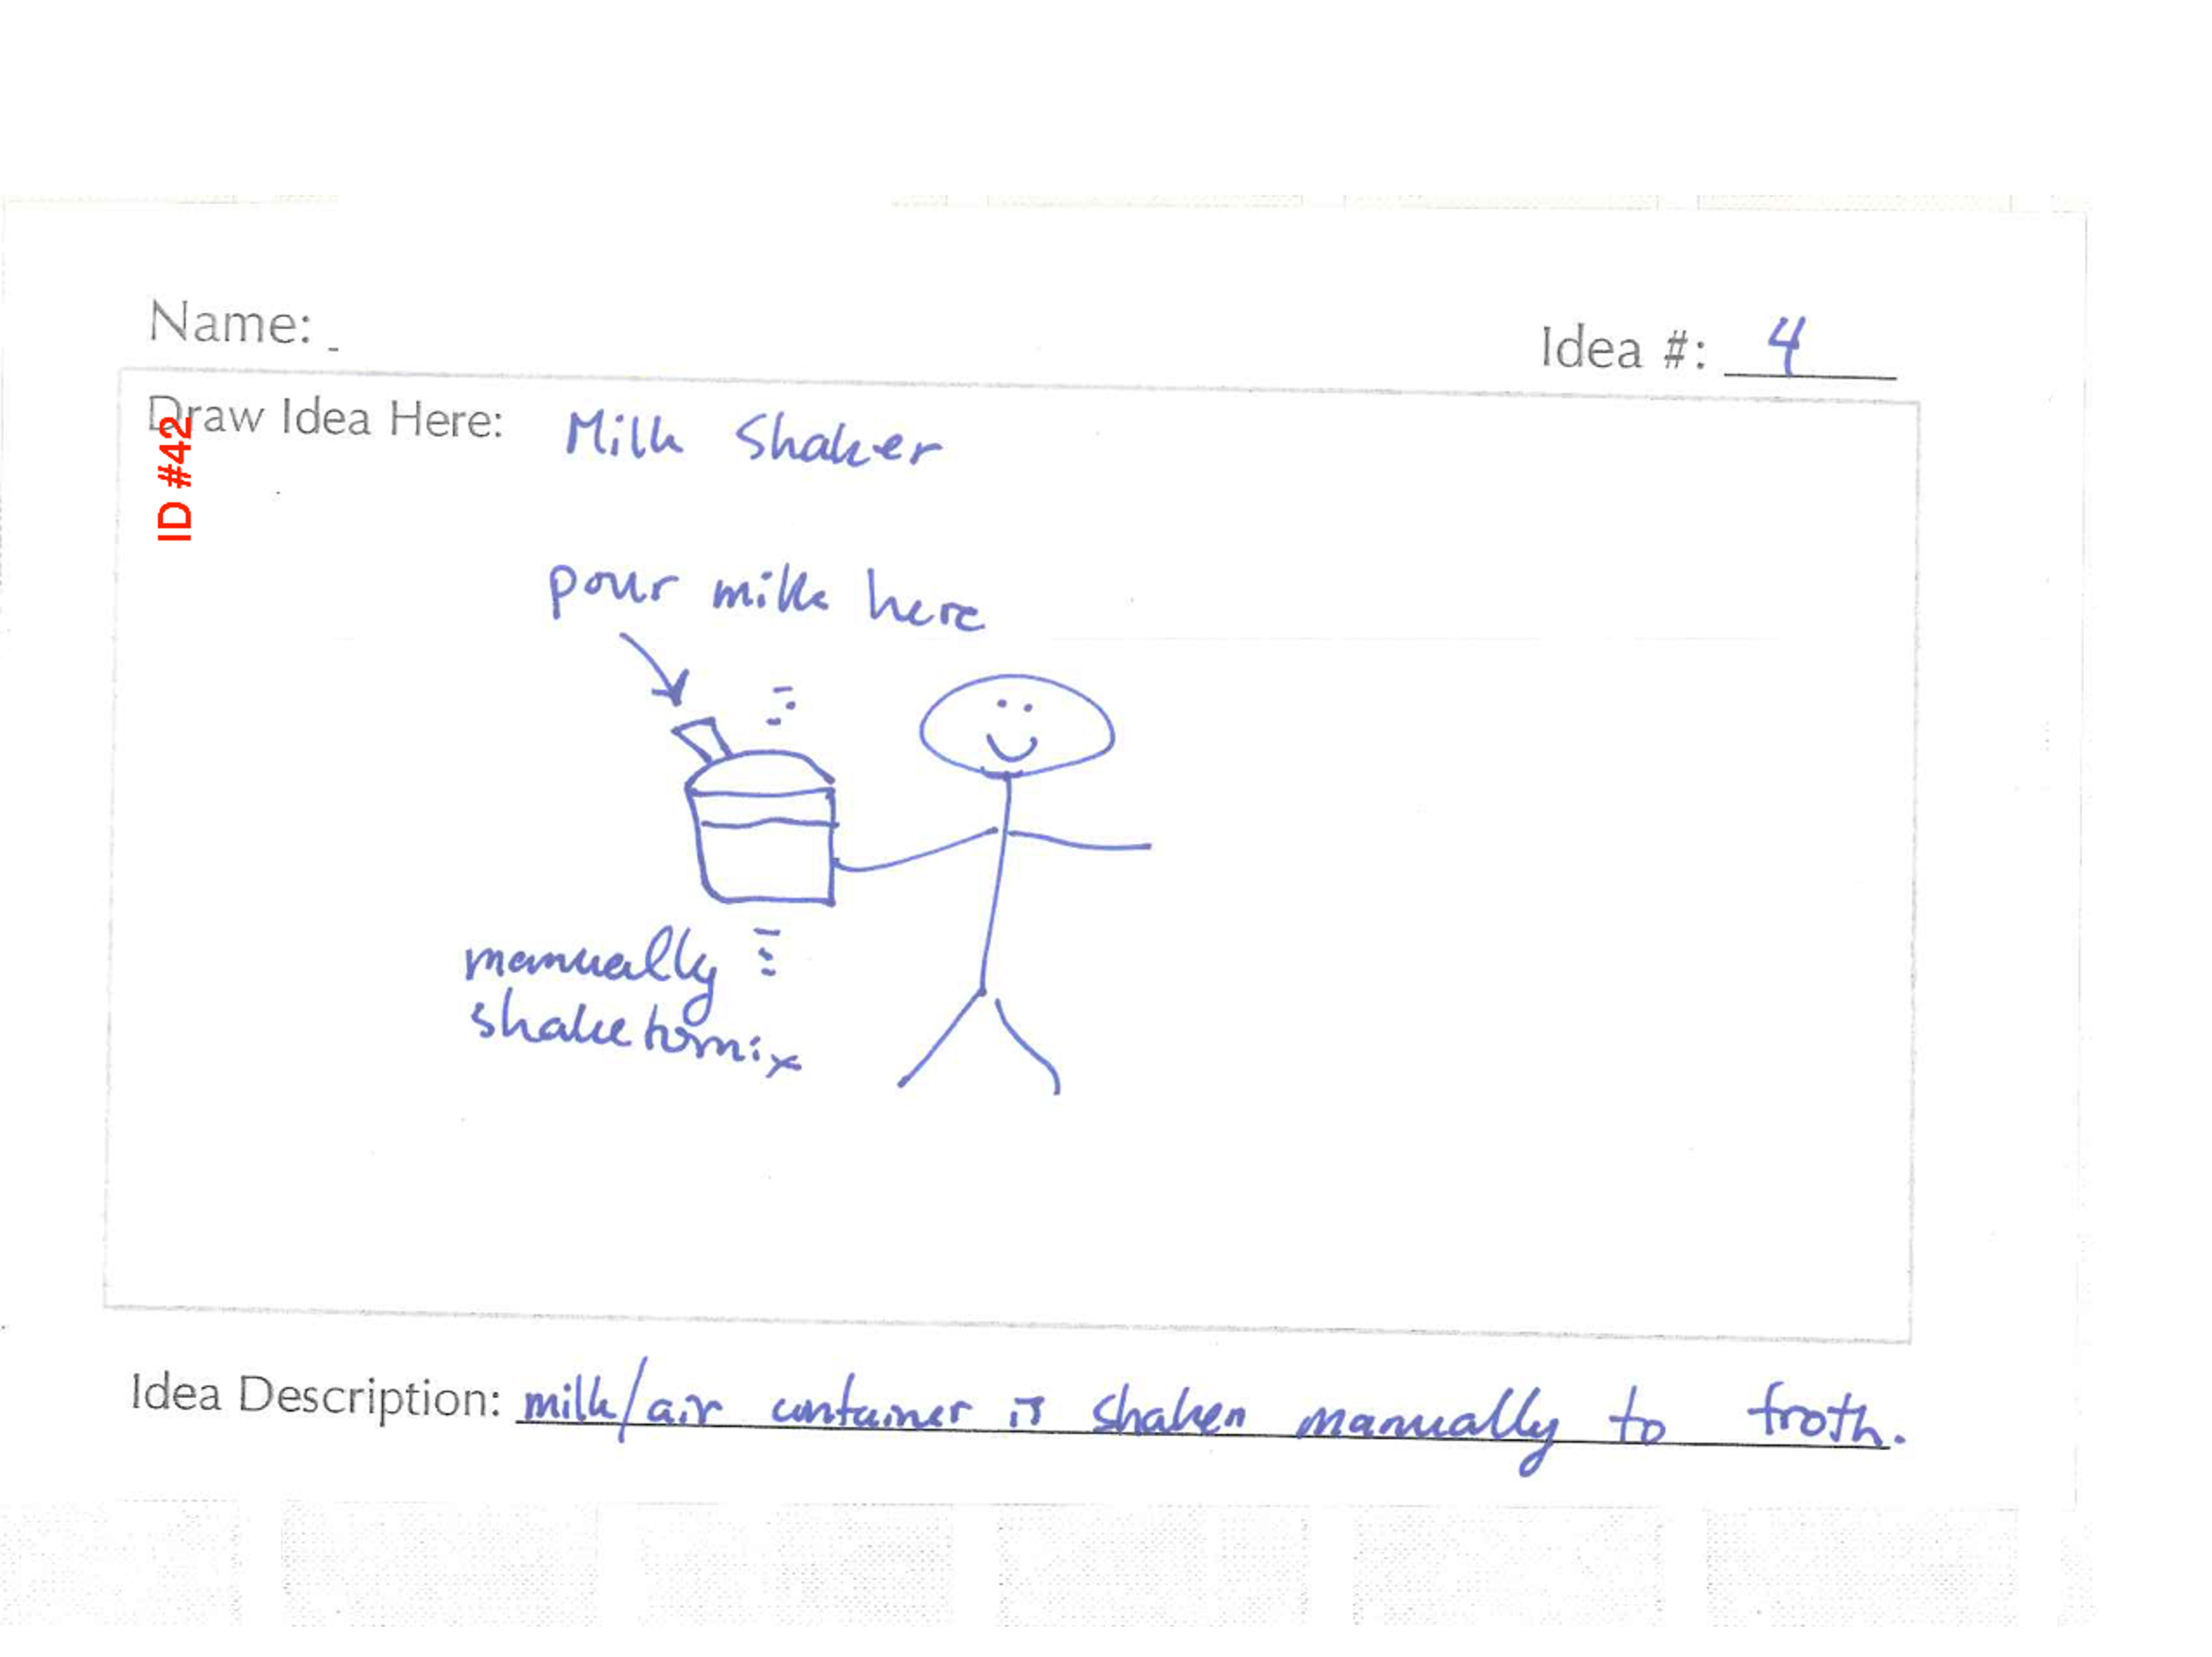 Name:
Idea #: 4
Draw Idea Here: Milk Shaker
ID #42
pour milk here
manually
shake to mix
Idea Description: milk/air container is shaken manually to froth.